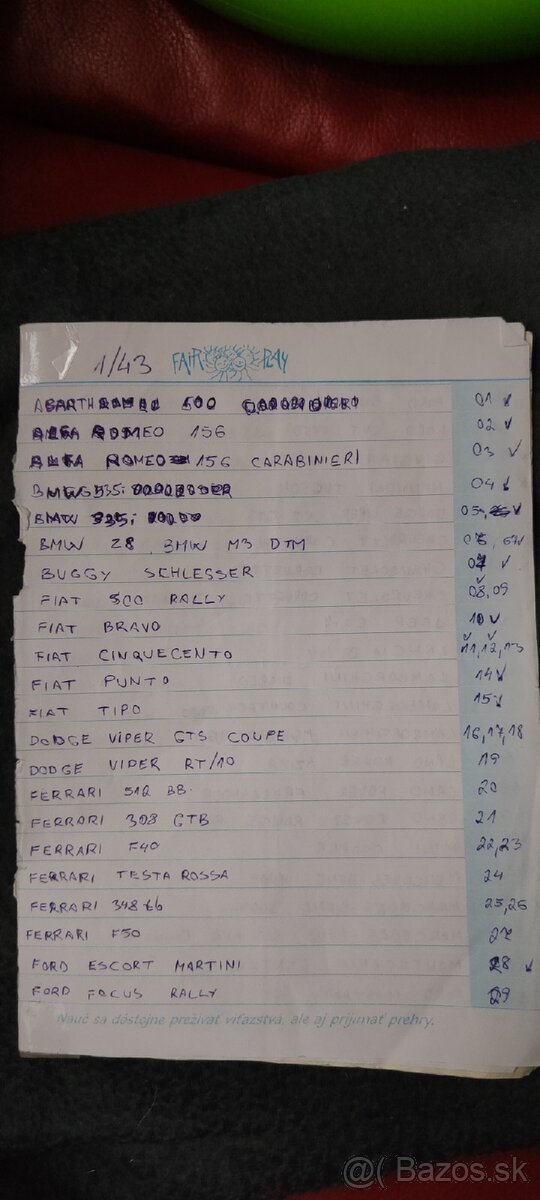 1/43 FAIR PLAY
ABARTH 500 01 ✓
ALFA ROMEO 156 02 ✓
ALFA ROMEO 156 CARABINIERI 03 ✓
BMW 535i 04 ✓
BMW 05 ✓
BMW 28 BMW M3 DTM
BUGGY SCHLESSER 07 ✓
FIAT 500 RALLY 08,09
FIAT BRAVO 10 ✓
FIAT CINQUECENTO 11,12,13
FIAT PUNTO 14 ✓
FIAT TIPO 15 ✓
DODGE VIPER GTS COUPE 16,17,18
DODGE VIPER RT/10 19
FERRARI 512 BB 20
FERRARI 308 GTB 21
FERRARI F40 22,23
FERRARI TESTA ROSSA 24
FERRARI 348 tb 25,26
FERRARI F50 27
FORD ESCORT MARTINI 28 ✓
FORD FOCUS RALLY 29
Nauč sa dôstojne prežívať víťazstvá, ale aj prijímať prehry.
@( Bazos.sk